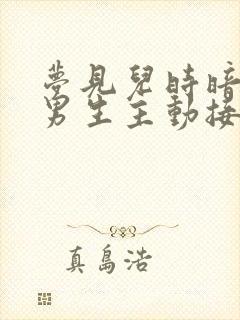 夢見兒時暗
男生主動接
真島浩